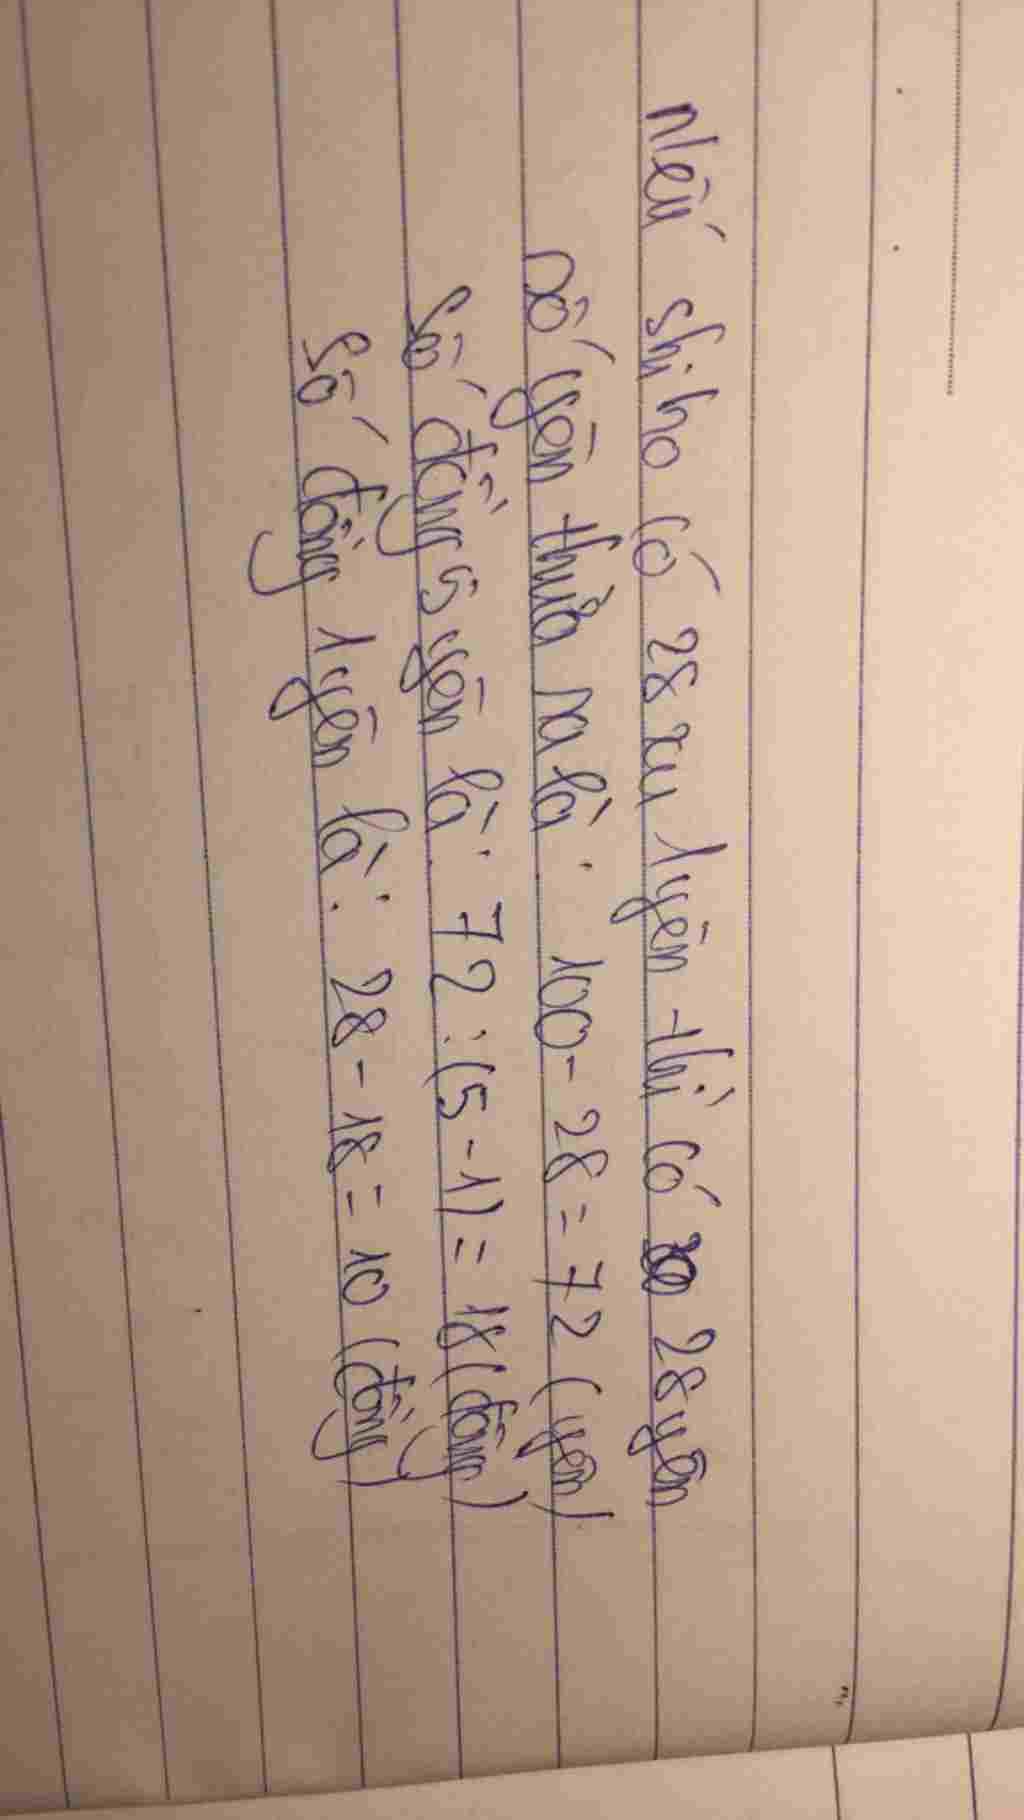 Nếu Shiho có 28 xu 1 yên thì có 28 yên
Số yên thừa ra là: 100 - 28 = 72 (yên)
Số đồng 5 yên là: 72 : (5 - 1) = 18 (đồng)
Số đồng 1 yên là: 28 - 18 = 10 (đồng)